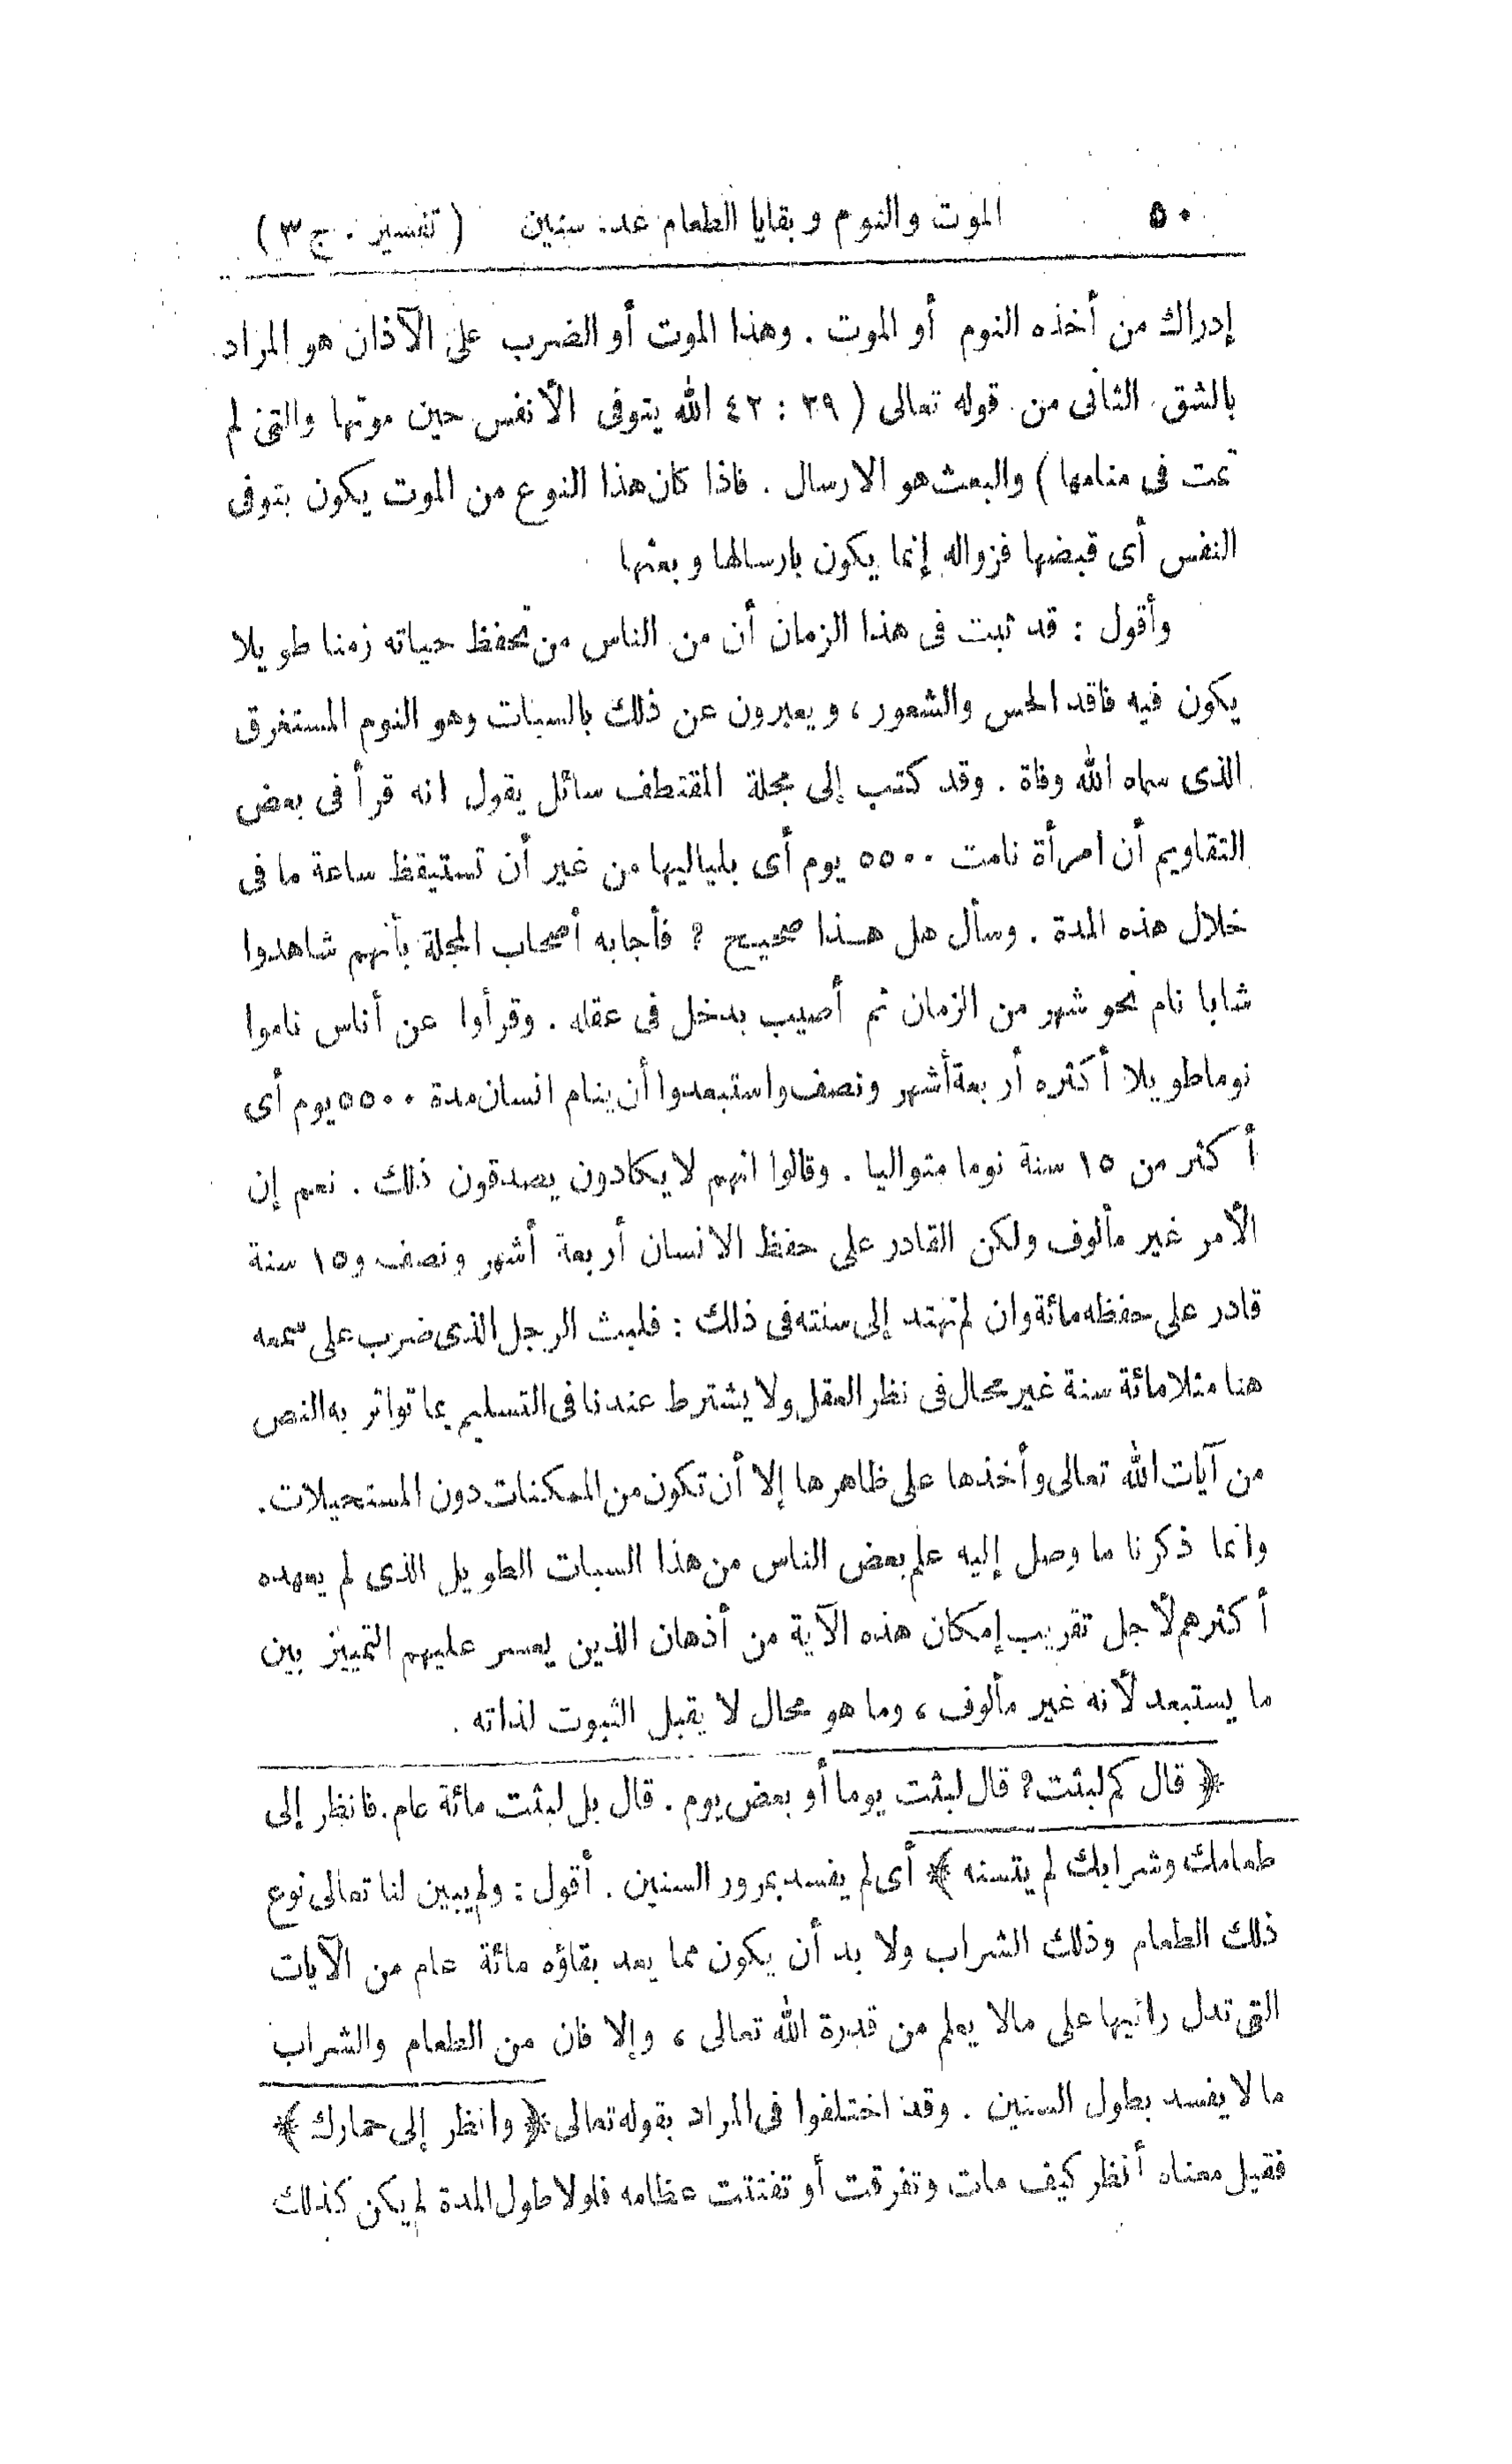 ٥٠ الموت والنوم وبقايا الطعام عدة سنين (تفسير . ج ٣)
إدراك من أخذه النوم أو الموت . وهذا الموت أو الضرب على الآذان هو المراد
بالشق الثانى من قوله تعالى ( ٣٩ : ٤٢ الله يتوفى الأنفس حين موتها والتى لم
تمت فى منامها ) والبعث هو الارسال . فاذا كان هذا النوع من الموت يكون بتوفى
النفس أى قبضها فزواله إنما يكون بارسالها وبعثها
وأقول : قد ثبت فى هذا الزمان أن من الناس من تحفظ حياته زمنا طويلا
يكون فيه فاقد الحس والشعور ، ويعبرون عن ذلك بالسبات وهو النوم المستغرق
الذى سماه الله وفاة . وقد كتب إلى مجلة المقتطف سائل يقول انه قرأ فى بعض
التقاويم أن امرأة نامت ٥٥٠٠ يوم أى بلياليها من غير أن تستيقظ ساعة ما فى
خلال هذه المدة . وسأل هل هذا صحيح ؟ فأجابه أصحاب المجلة بأنهم شاهدوا
شابا نام نحو شهر من الزمان ثم أصيب بدخل فى عقله . وقرأوا عن أناس ناموا
نوما طويلا أكثره أربعة أشهر ونصف واستبعدوا أن ينام انسان مدة ٥٥٠٠ يوم أى
أكثر من ١٥ سنة نوما متواليا . وقالوا انهم لا يكادون يصدقون ذلك . نعم إن
الأمر غير مألوف ولكن القادر على حفظ الانسان أربعة أشهر ونصف و١٥ سنة
قادر على حفظه مائة وان لم نهتد إلى سنته فى ذلك : فلبث الرجل الذى ضرب على سمعه
هنا مثلا مائة سنة غير محال فى نظر العقل ولا يشترط عندنا فى التسليم بما تواتر به النص
من آيات الله تعالى وأخذها على ظاهرها إلا أن تكون من الممكنات دون المستحيلات .
وانما ذكرنا ما وصل إليه علم بعض الناس من هذا السبات الطويل الذى لم يعهده
أكثرهم لأجل تقريب إمكان هذه الآية من أذهان الذين يعسر عليهم التمييز بين
ما يستبعد لأنه غير مألوف ، وما هو محال لا يقبل الثبوت لذاته .
﴿ قال كم لبثت ؟ قال لبثت يوما أو بعض يوم . قال بل لبثت مائة عام . فانظر إلى
طعامك وشرابك لم يتسنه ﴾ أى لم يفسد بمرور السنين . أقول : ولم يبين لنا تعالى نوع
ذلك الطعام وذلك الشراب ولا بد أن يكون مما يعد بقاؤه مائة عام من الآيات
التى تدل رائيها على مالا يعلم من قدرة الله تعالى ، وإلا فان من الطعام والشراب
ما لا يفسد بطول السنين . وقد اختلفوا فى المراد بقوله تعالى ﴿ وانظر إلى حمارك ﴾
فقيل معناه أنظر كيف مات وتفرقت أو تفتتت عظامه فلولا طول المدة لم يكن كذلك